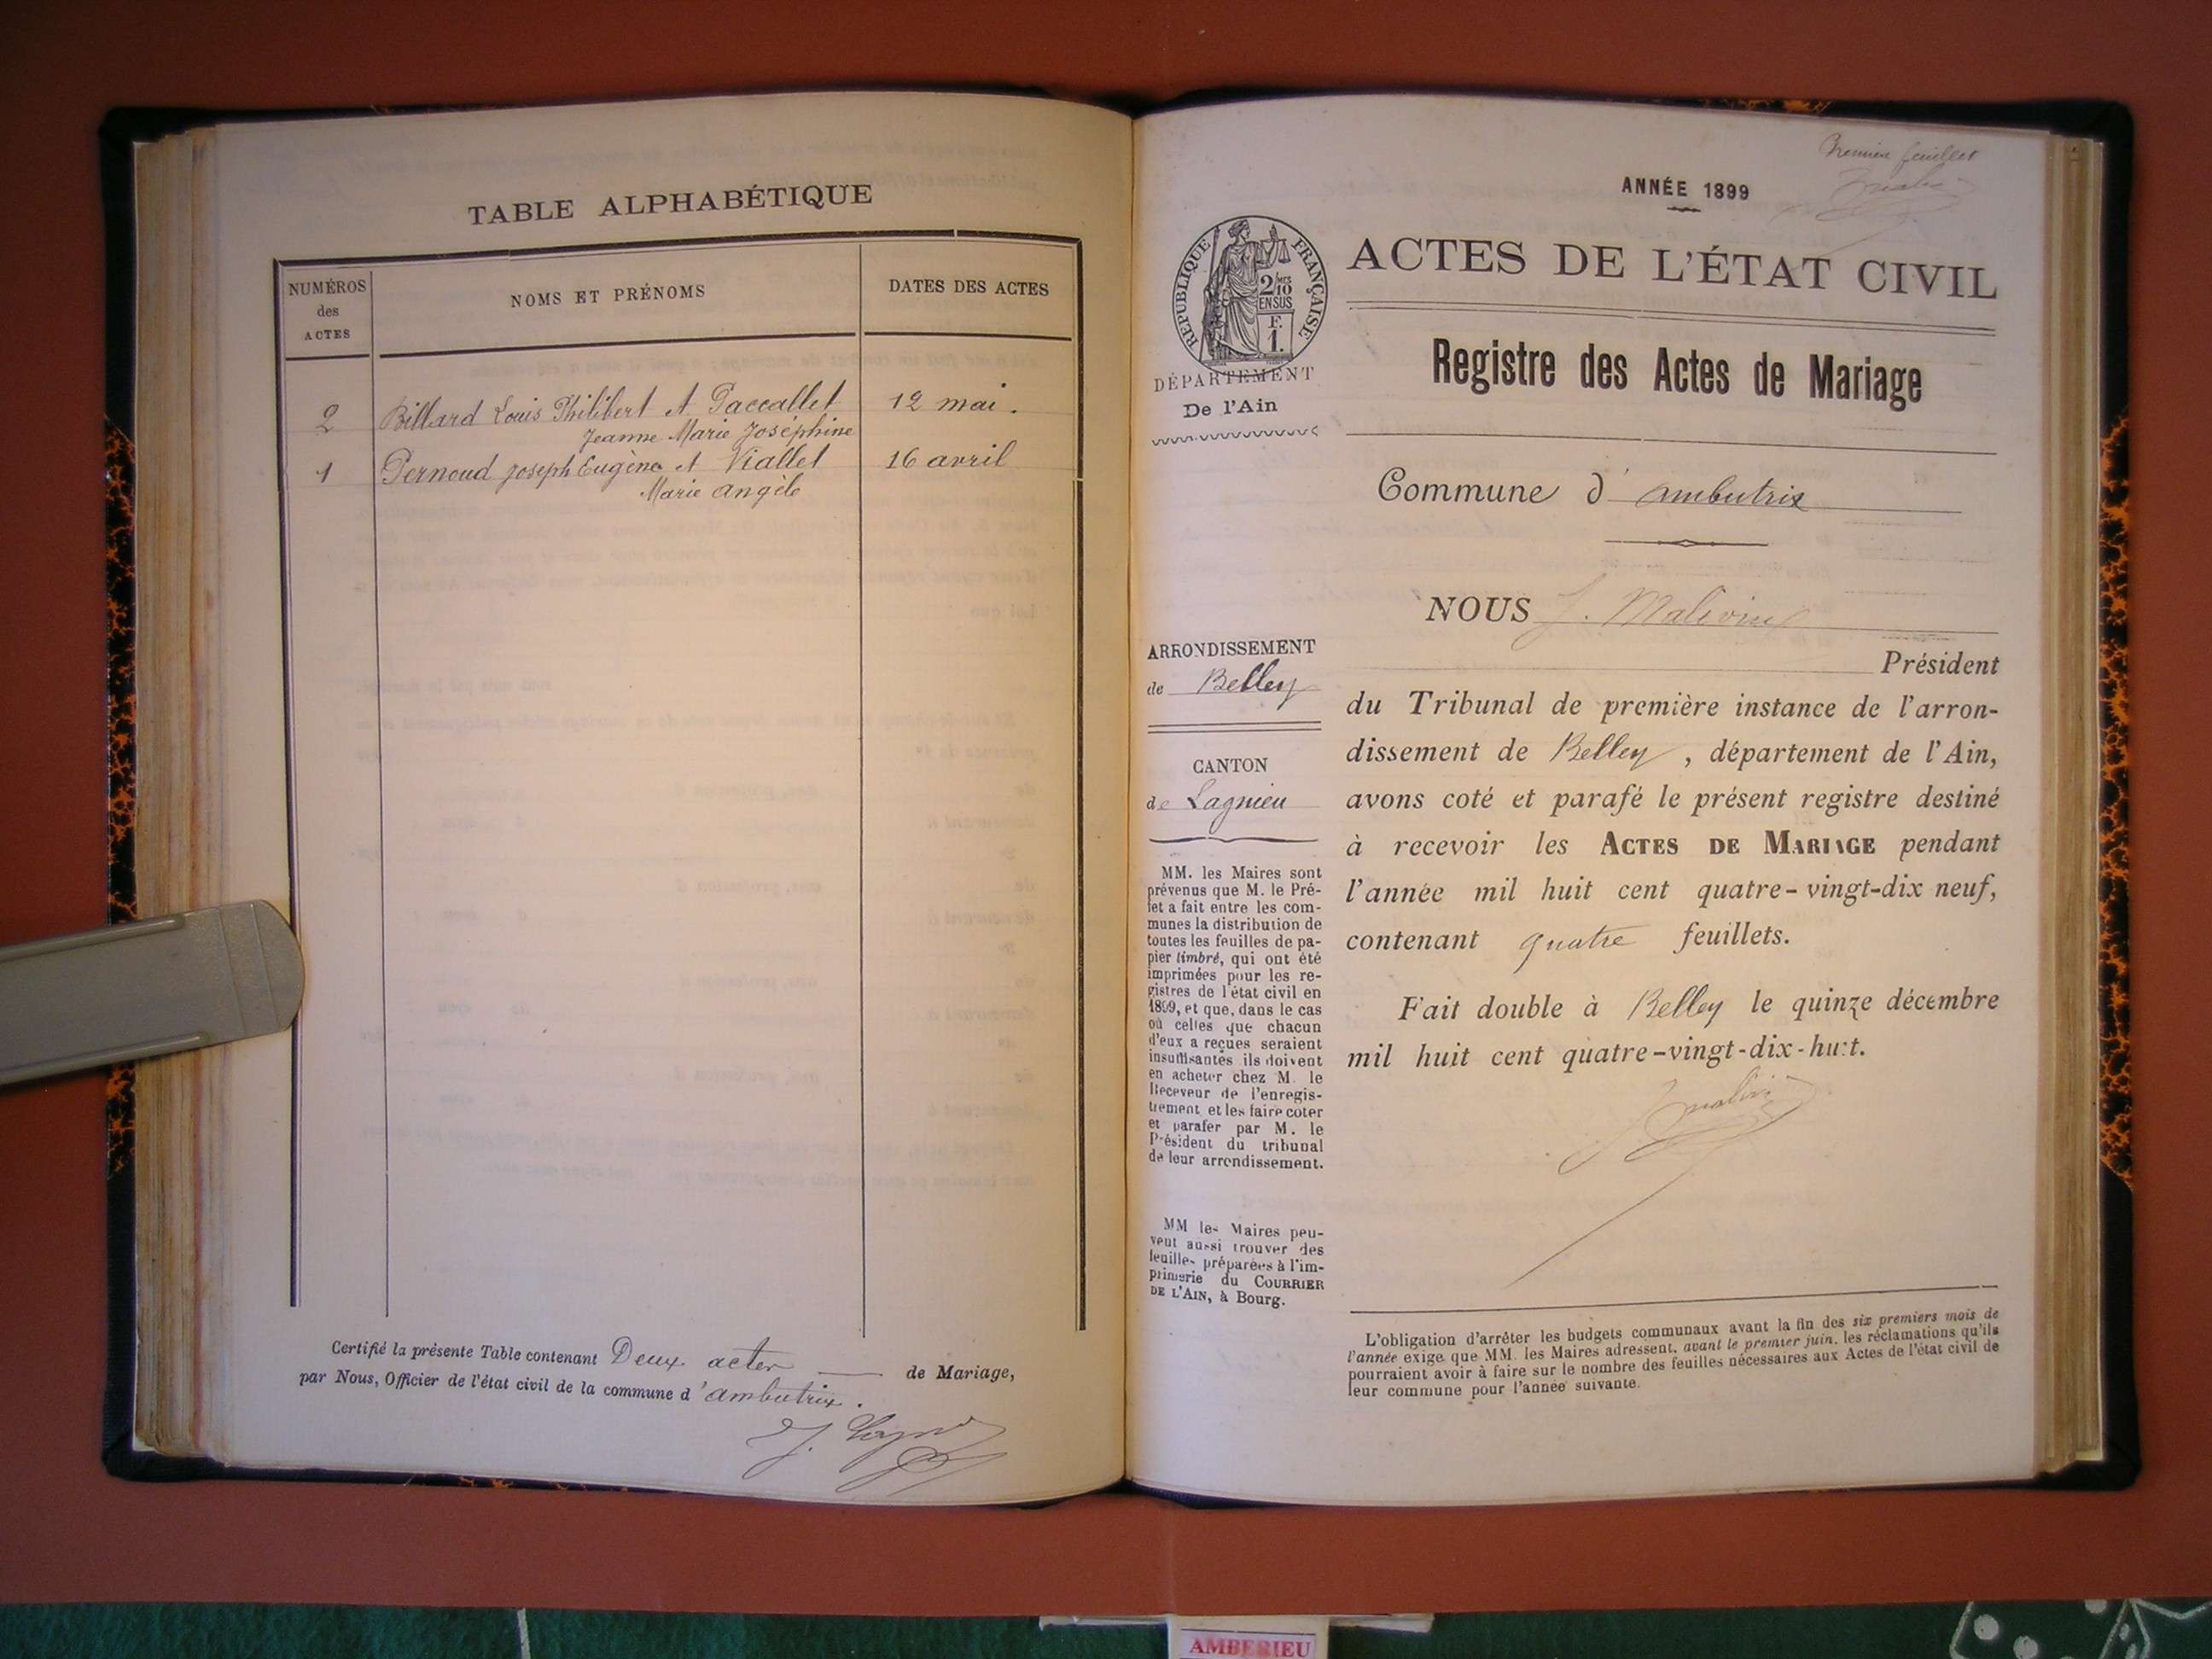 TABLE ALPHABÉTIQUE
NUMÉROS
des
ACTES
NOMS ET PRÉNOMS
DATES DES ACTES
2 Billard Louis Philibert et Paccallet 12 mai.
Jeanne Marie Joséphine
1 Pernoud Joseph Eugène et Viallet 16 avril
Marie Angèle
Certifié la présente Table contenant Deux actes de Mariage,
par Nous, Officier de l'état civil de la commune d'ambutrix.
Premier feuillet
ANNÉE 1899
RÉPUBLIQUE FRANÇAISE
2/10 MES
EN SUS
F.
1.
ACTES DE L'ÉTAT CIVIL
DÉPARTEMENT
De l'Ain
Registre des Actes de Mariage
Commune d'ambutrix
NOUS
Président
ARRONDISSEMENT
de Belley
CANTON
de Lagnieu
du Tribunal de première instance de l'arron-
dissement de Belley, département de l'Ain,
avons coté et parafé le présent registre destiné
à recevoir les ACTES DE MARIAGE pendant
l'année mil huit cent quatre-vingt-dix neuf,
contenant quatre feuillets.
Fait double à Belley le quinze décembre
mil huit cent quatre-vingt-dix-huit.
MM. les Maires sont
prévenus que M. le Pré-
fet a fait entre les com-
munes la distribution de
toutes les feuilles de pa-
pier timbré, qui ont été
imprimées pour les re-
gistres de l'état civil en
1899, et que, dans le cas
où celles que chacun
d'eux a reçues seraient
insuffisantes ils doivent
en acheter chez M. le
Receveur de l'enregis-
trement et les faire coter
et parafer par M. le
Président du tribunal
de leur arrondissement.
MM les Maires peu-
vent aussi trouver des
feuilles préparées à l'im-
primerie du COURRIER
DE L'AIN, à Bourg.
L'obligation d'arrêter les budgets communaux avant la fin des six premiers mois de
l'année exige que MM. les Maires adressent, avant le premier juin, les réclamations qu'ils
pourraient avoir à faire sur le nombre des feuilles nécessaires aux Actes de l'état civil de
leur commune pour l'année suivante.
AMBERIEU